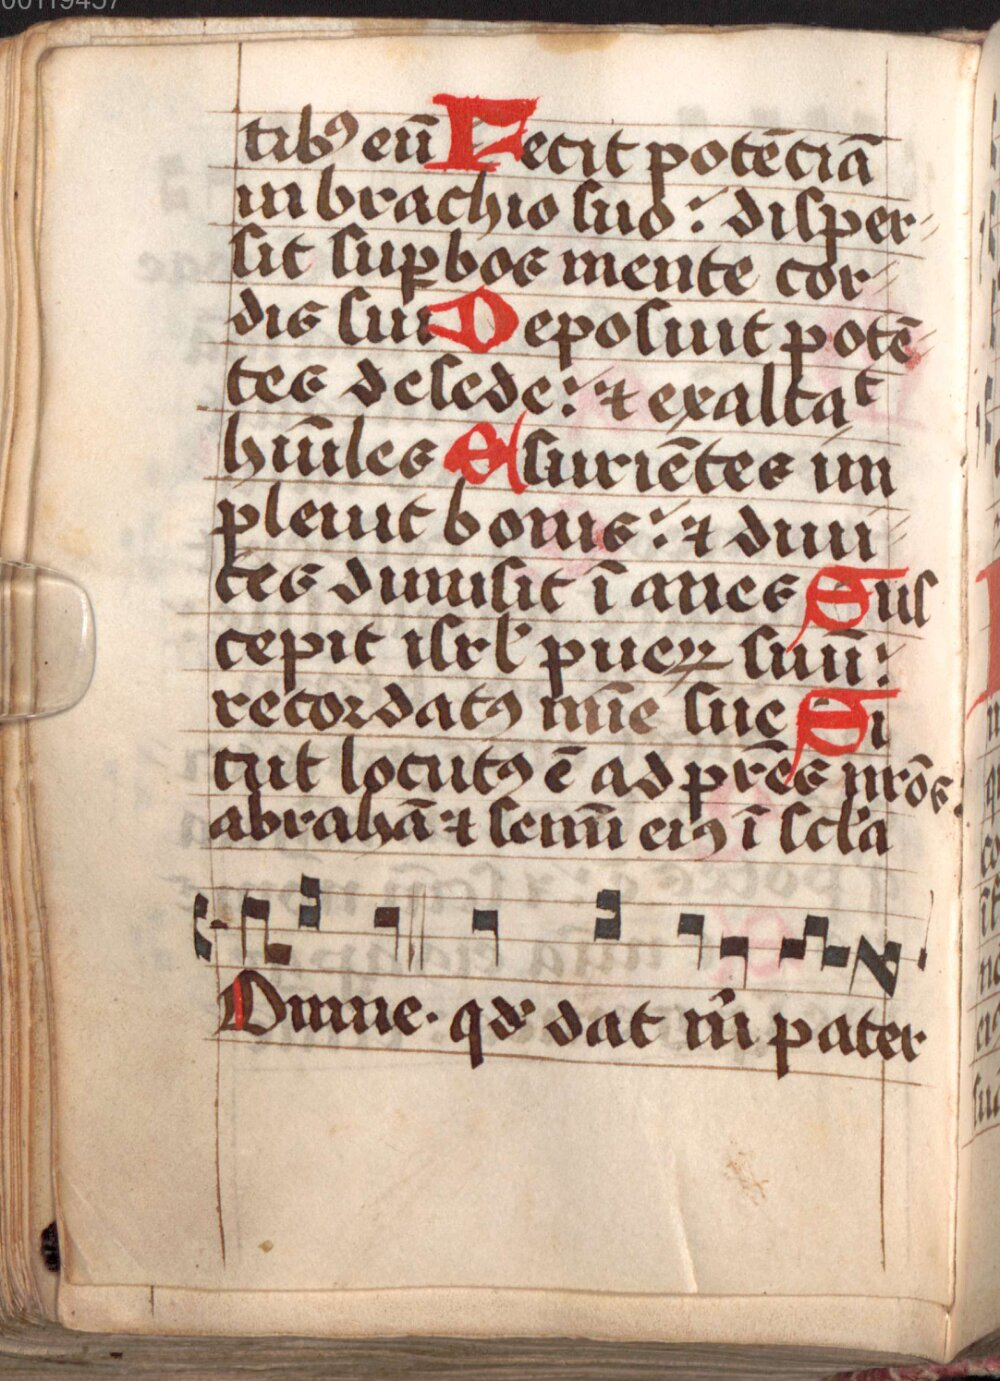 00119457
tibꝰ eū Fecit potēciā
in brachio suo: disper-
sit suꝑbos mente cor-
dis sui Deposuit potē-
tes de sede: ⁊ exaltaᵗ
hūiles Esurientēs im
pleuit bonis: ⁊ diui
tes dimisit ī anes Sus
cepit isrl̓ pueꝝ suū:
recordatꝰ mīe sue Si
cut locutꝰ ē ad pr̄es nrōs.
abrahā ⁊ semī eiꝰ ī scl̓a
Omne. qd̓ dat m̄ pater